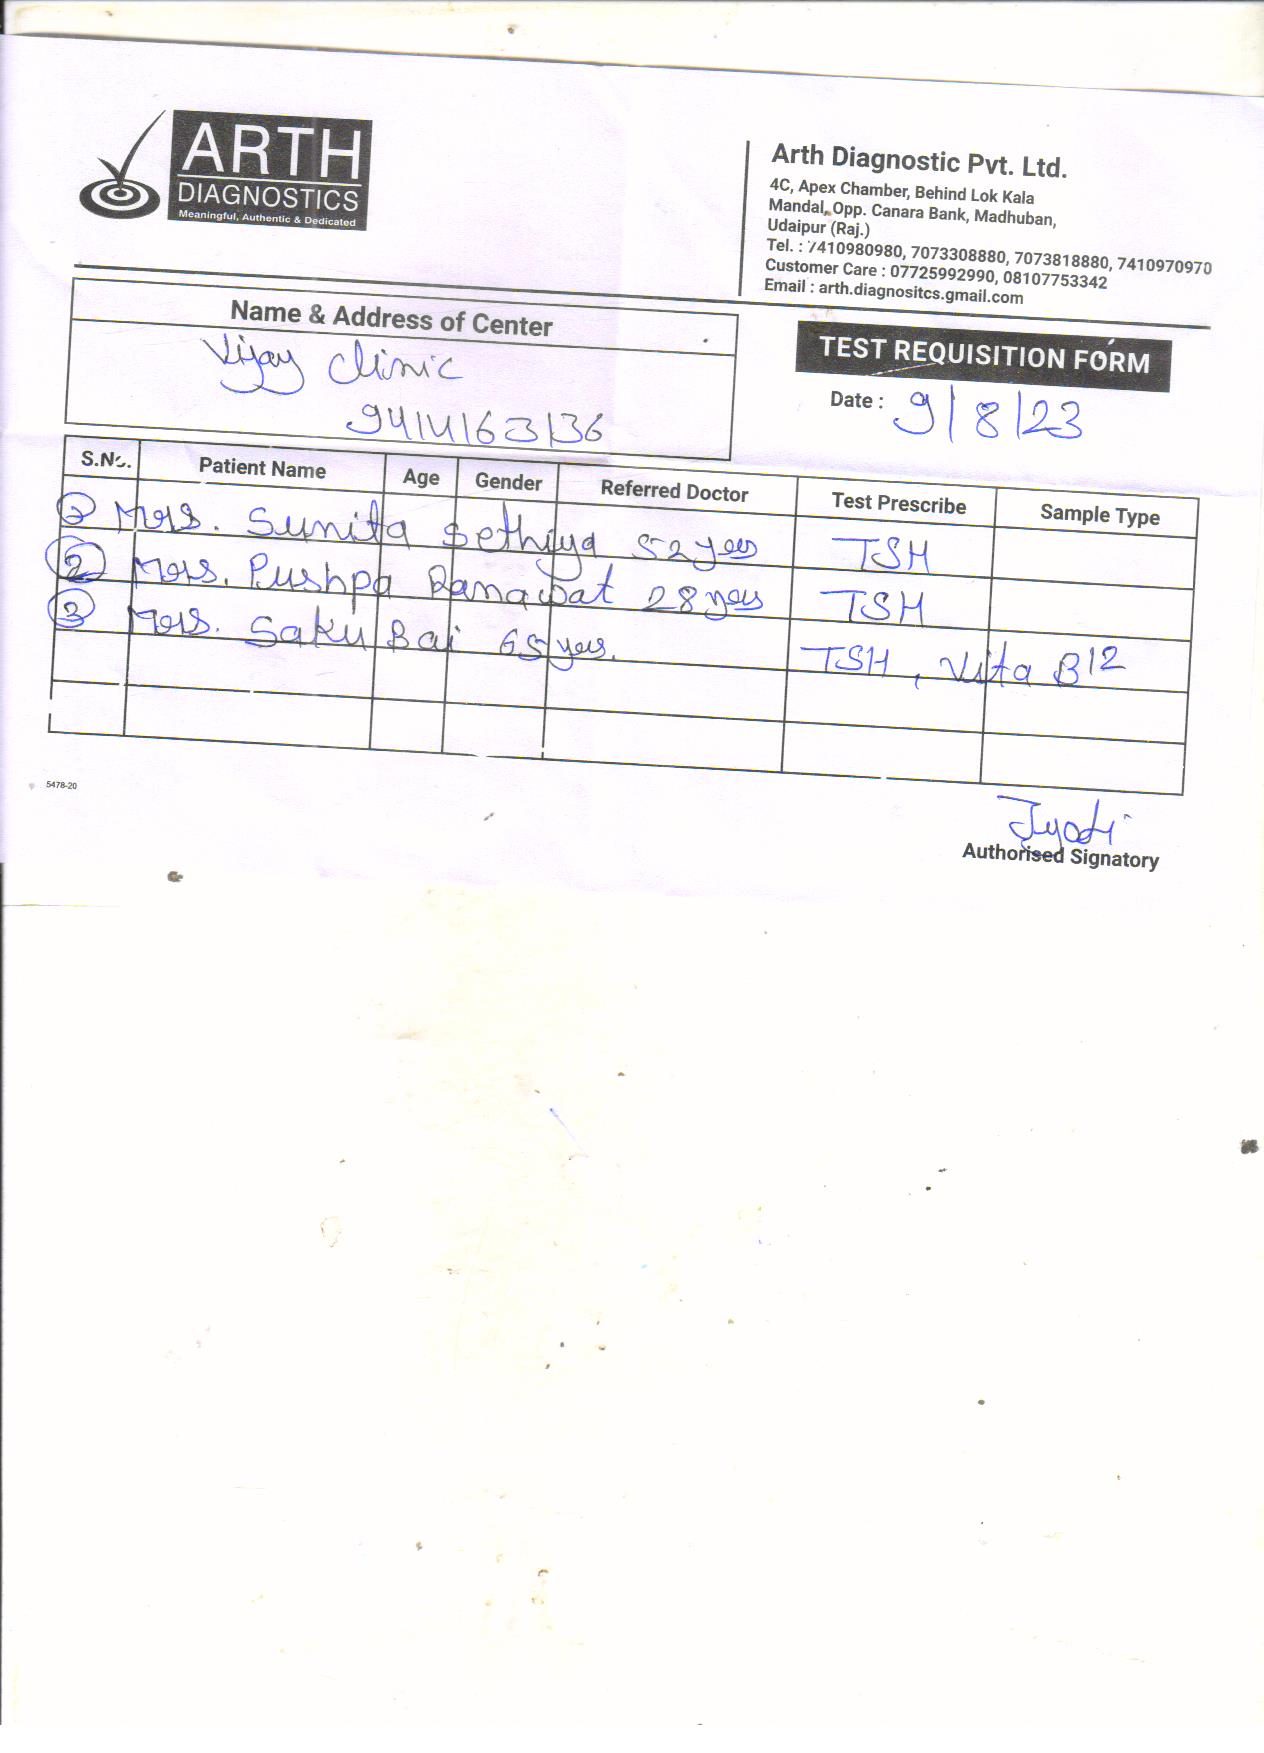 ARTH
DIAGNOSTICS
Meaningful, Authentic & Dedicated
Arth Diagnostic Pvt. Ltd.
4C, Apex Chamber, Behind Lok Kala
Mandal, Opp. Canara Bank, Madhuban,
Udaipur (Raj.)
Tel. : 7410980980, 7073308880, 7073818880, 7410970970
Customer Care : 07725992990, 08107753342
Email : arth.diagnositcs.gmail.com
Name & Address of Center
Vijay Clinic
9414163136
TEST REQUISITION FORM
Date : 9/8/23
S.No. Patient Name Age Gender Referred Doctor Test Prescribe Sample Type
Mrs. Sunita Sethiya 52 yers TSH
2 Mrs. Pushpa Ranawat 28 yers TSH
3 Mrs. Saku Bai 65 yers. TSH, Vita B12
5478-20
Jyoti
Authorised Signatory